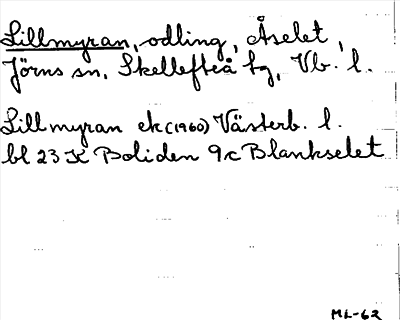 Lillmyran, odling, Åselet,
Jörns sn, Skellefteå tg, Vb. l.
Lillmyran ek (1960) Västerb. l.
bl 23 K Boliden 9c Blankselet
ML-62